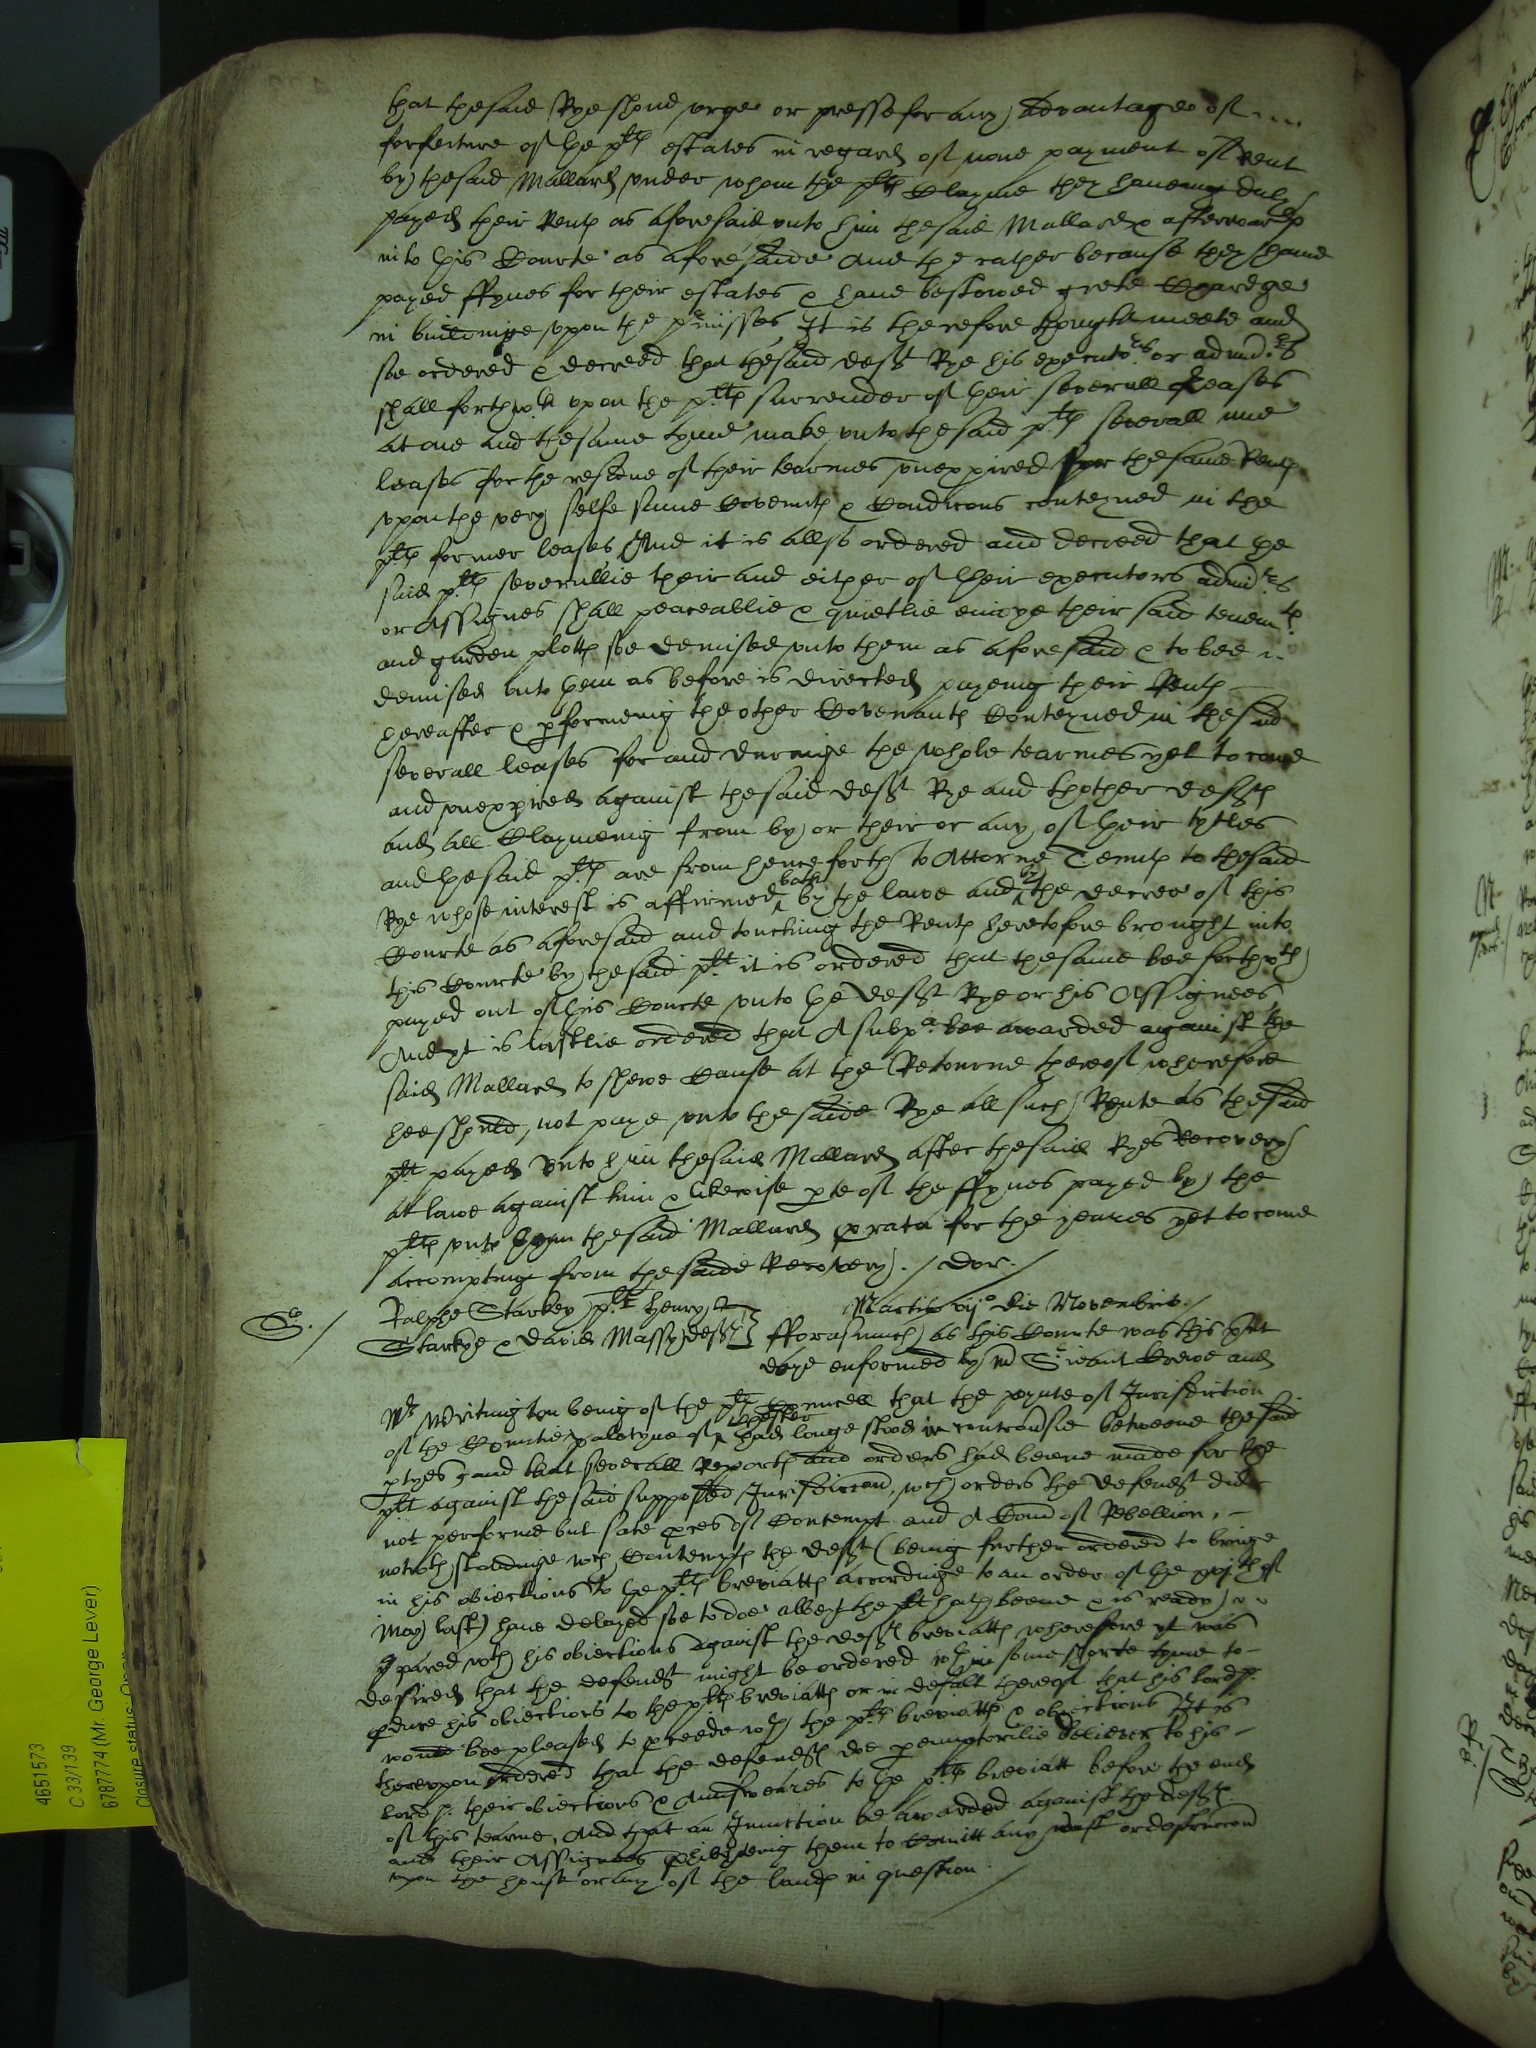 that thesaid Rye shoud urge or presse for any advantage of
forfeiture of the pltes estates in regard of none payment of Rent
by thesaid Mallard under whom the pltes Clayme they haveing duly
payed their Rentes as aforesaid unto him thesaid Mallard & afterwardes
into this Courte as aforesaide And the rather because they have
payed ffynes for their estates & have bestowed greate Chardge
in buildinge upon the p'misses It is therefore thought meete and
soe ordered & decreed that thesaid deft Rye his executors or admdrs
shall forthwth upon the pltes surrender of their severall Leases
at one and thesame tyme make unto thesaid pltes severall new
leases for the residue of their tearmes unexpired for thesame Rentes
upon the very selfe same Covenntes & Condicons conteyned in the
pltes former leases And it is allso ordered and decreed that the
said pltes severallie their and either of their executors admdrs
or Assignes shall peaceablie & quietlie enioye their said tenemtes
and garden plottes soe demised unto them as aforesaid & to bee
demised unto them as before is directed payeing their Rentes
hereafter & p'formeing the other Covenantes Conteyned in thesaid
severall leases for and dureinge the whole tearmes yet to come
and unexpired against thesaid deft Rye and thother deftes
and all Claymeing from by or their or any of their tytles
and thesaid pltes are from henceforth to Attorne Tenntes to thesaid
Rye whose interest is affirmed both by the lawe and by the decree of this
Courte as aforesaid and touching the Rentes heretofore brought into
this Courte by thesaid plt it is ordered that thesame bee forthwth
payed out of this Courte unto the deft Rye or his Assignees
And yt is lastlie ordered that A subpa. bee awarded against the
said Mallard to shewe Cause at the Retourne thereof wherefore
hee should not paye unto thesaide Rye all such Rente as thesaid
plt payed unto him thesaid Mallard after thesaid Ryes Recovery
at lawe against him & likewise p'te of the ffynes payed by the
pltes unto hym thesaid Mallard p rata for the yeares yet to come
accompting from thesaide Recovery. / dor. /
S. /
Ralphe Starkey plt Henry
Starkye & David Massy deftes
Martis vijo die Novembris /
fforasmuch as this Courte was this p'nt
daye enformed by mr Sriant Crewe and
Mr Writington being of the pltes Councell that the poynte of Jurisdiction
of the Countie palatyne of Chester had longe stood in controv'sie betweene thesaid
p'tyes, and that severall Reportes and orders had beene made for the
plt against thesaid supposed Jurisdiccon, wch orders the defendt did
not performe but sate p'ces of Contempt and A Comd of Rebellion,
notwthstandinge wch Contemptes the deft (being further ordered to bringe
in his obiections to the pltes breviattes accordinge to an order of the of
May last) have delayed soe to doe albeyt the plt hath beene & is ready
p'pared wth his obiections against the deftes breviattes wherefore yt was
desired that the defendt might be ordered wth in some shorte tyme to
p'duce his obiections to the pltes breviattes or in default thereof that his lordsp.
would bee pleased to p'ceede wth the pltes breviattes & obiections It is
thereupon ordered that the defendtes doe peremptorilie deliever to his
lordsp. their obiections & Aunsweares to the pltes breviatt before the end
of this tearme, And that an Iniunction be awarded against the deftes.
and their Assignees p'hibiteing them to Comitt any wast or destruccon
upon the house or any of the landes in question. /
4651573
C 33/139
6787774 (Mr. George Lever)
Closure status: Open